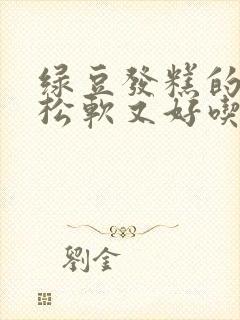 绿豆發糕的
松軟又好喫
劉金